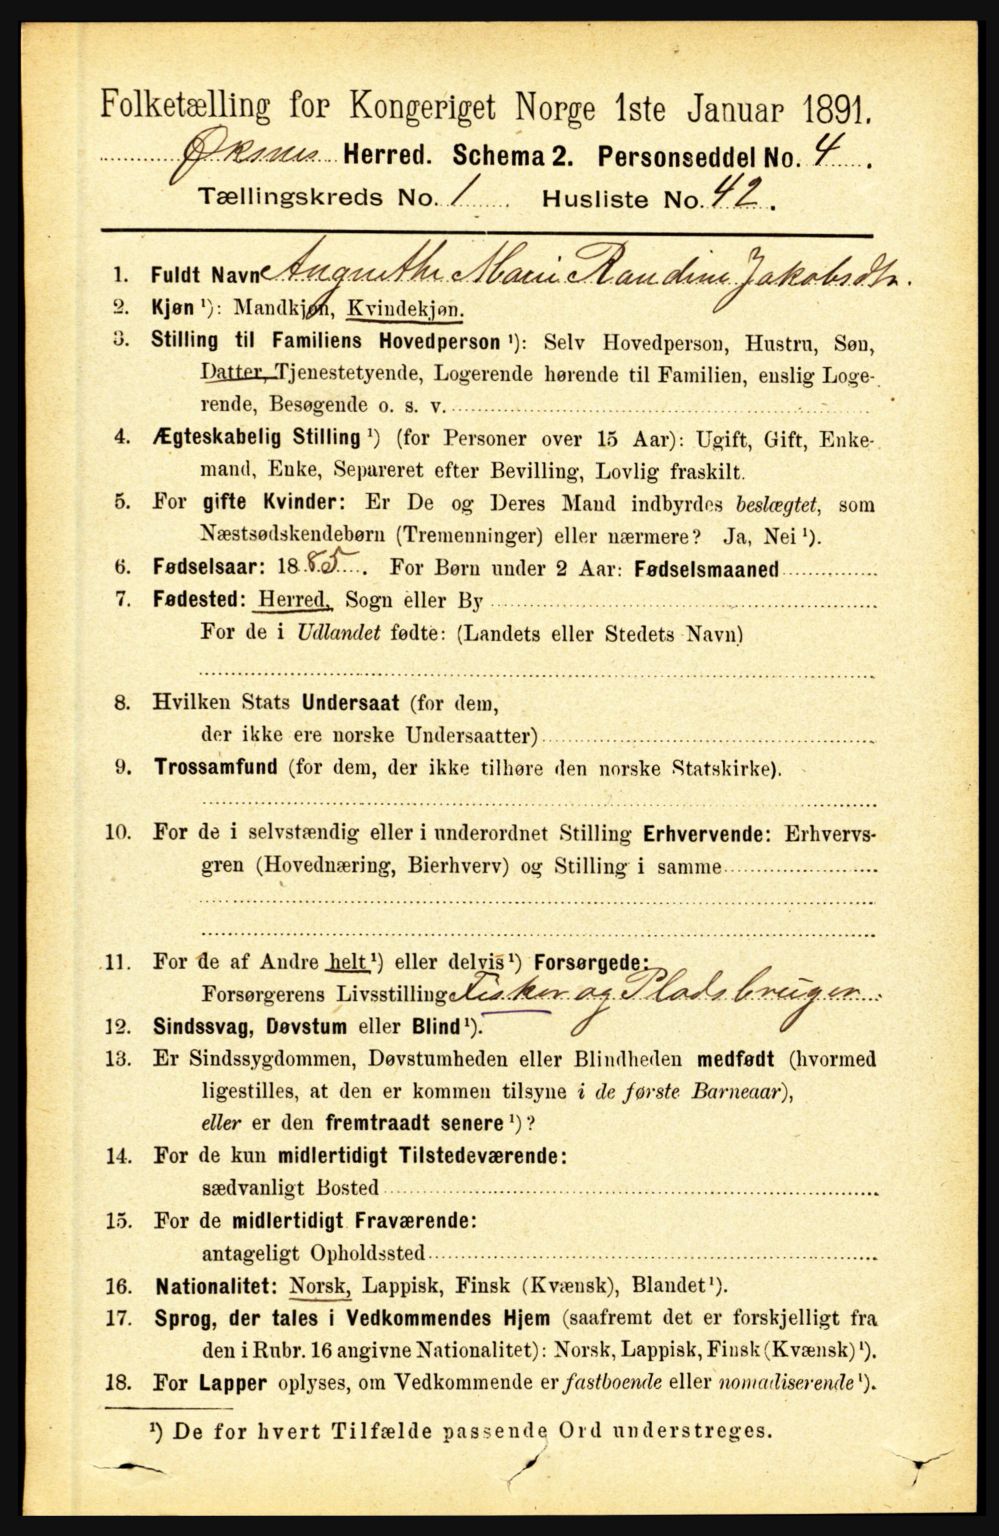 Folketælling for Kongeriget Norge 1ste Januar 1891.
Øksnes Herred. Schema 2. Personseddel No. 4.
Tællingskreds No. 1 Husliste No. 42.
1. Fuldt Navn Angnethe Marie Randine Jakobsdtr.
2. Kjøn ¹): Mandkjøn, Kvindekjøn.
3. Stilling til Familiens Hovedperson ¹): Selv Hovedperson, Hustru, Søn,
Datter, Tjenestetyende, Logerende hørende til Familien, enslig Loge-
rende, Besøgende o. s. v.
4. Ægteskabelig Stilling ¹) (for Personer over 15 Aar): Ugift, Gift, Enke-
mand, Enke, Separeret efter Bevilling, Lovlig fraskilt.
5. For gifte Kvinder: Er De og Deres Mand indbyrdes beslægtet, som
Næstsødskendebørn (Tremenninger) eller nærmere? Ja, Nei ¹).
6. Fødselsaar: 1885. For Børn under 2 Aar: Fødselsmaaned
7. Fødested: Herred, Sogn eller By
For de i Udlandet fødte: (Landets eller Stedets Navn)
8. Hvilken Stats Undersaat (for dem,
der ikke ere norske Undersaatter)
9. Trossamfund (for dem, der ikke tilhøre den norske Statskirke).
10. For de i selvstændig eller i underordnet Stilling Erhvervende: Erhvervs-
gren (Hovednæring, Bierhverv) og Stilling i samme
11. For de af Andre helt ¹) eller delvis ¹) Forsørgede:
Forsørgerens Livsstilling Fisker og Pladsbruger.
12. Sindssvag, Døvstum eller Blind ¹).
13. Er Sindssygdommen, Døvstumheden eller Blindheden medfødt (hvormed
ligestilles, at den er kommen tilsyne i de første Barneaar),
eller er den fremtraadt senere ¹)?
14. For de kun midlertidigt Tilstedeværende:
sædvanligt Bosted
15. For de midlertidigt Fraværende:
antageligt Opholdssted
16. Nationalitet: Norsk, Lappisk, Finsk (Kvænsk), Blandet ¹).
17. Sprog, der tales i Vedkommendes Hjem (saafremt det er forskjelligt fra
den i Rubr. 16 angivne Nationalitet): Norsk, Lappisk, Finsk (Kvænsk) ¹).
18. For Lapper oplyses, om Vedkommende er fastboende eller nomadiserende ¹).
¹) De for hvert Tilfælde passende Ord understreges.